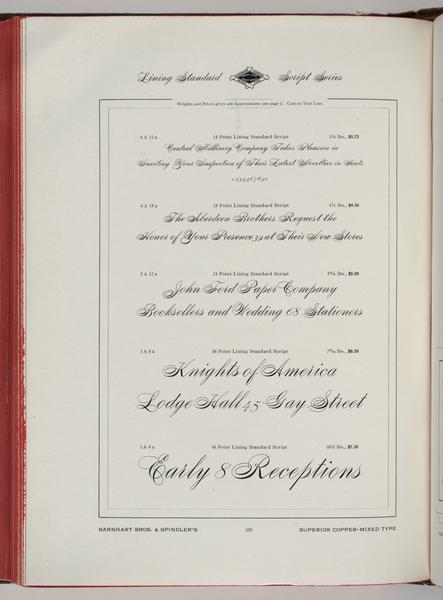 Lining Standard Script Series
Weights and Prices given are Approximate; see page 2. Cast on Text Line.
14 Point Lining Standard Script $3.75
Central Millinery Company Takes Pleasure in
Inviting Your Inspection of Their Latest Novelties in Hats
1234567890
18 Point Lining Standard Script
The Aberdeen Brothers Request the
Honor of Your Presence 39 at Their New Stores
24 Point Lining Standard Script $5.00
John Ford Paper Company
Booksellers and Wedding 68 Stationers
3 A 8 a 36 Point Lining Standard Script
Knights of America
Lodge Hall 45 Gay Street
48 Point Lining Standard Script
Early 8 Receptions
BARNHART BROS. & SPINDLER'S SUPERIOR COPPER-MIXED TYPE